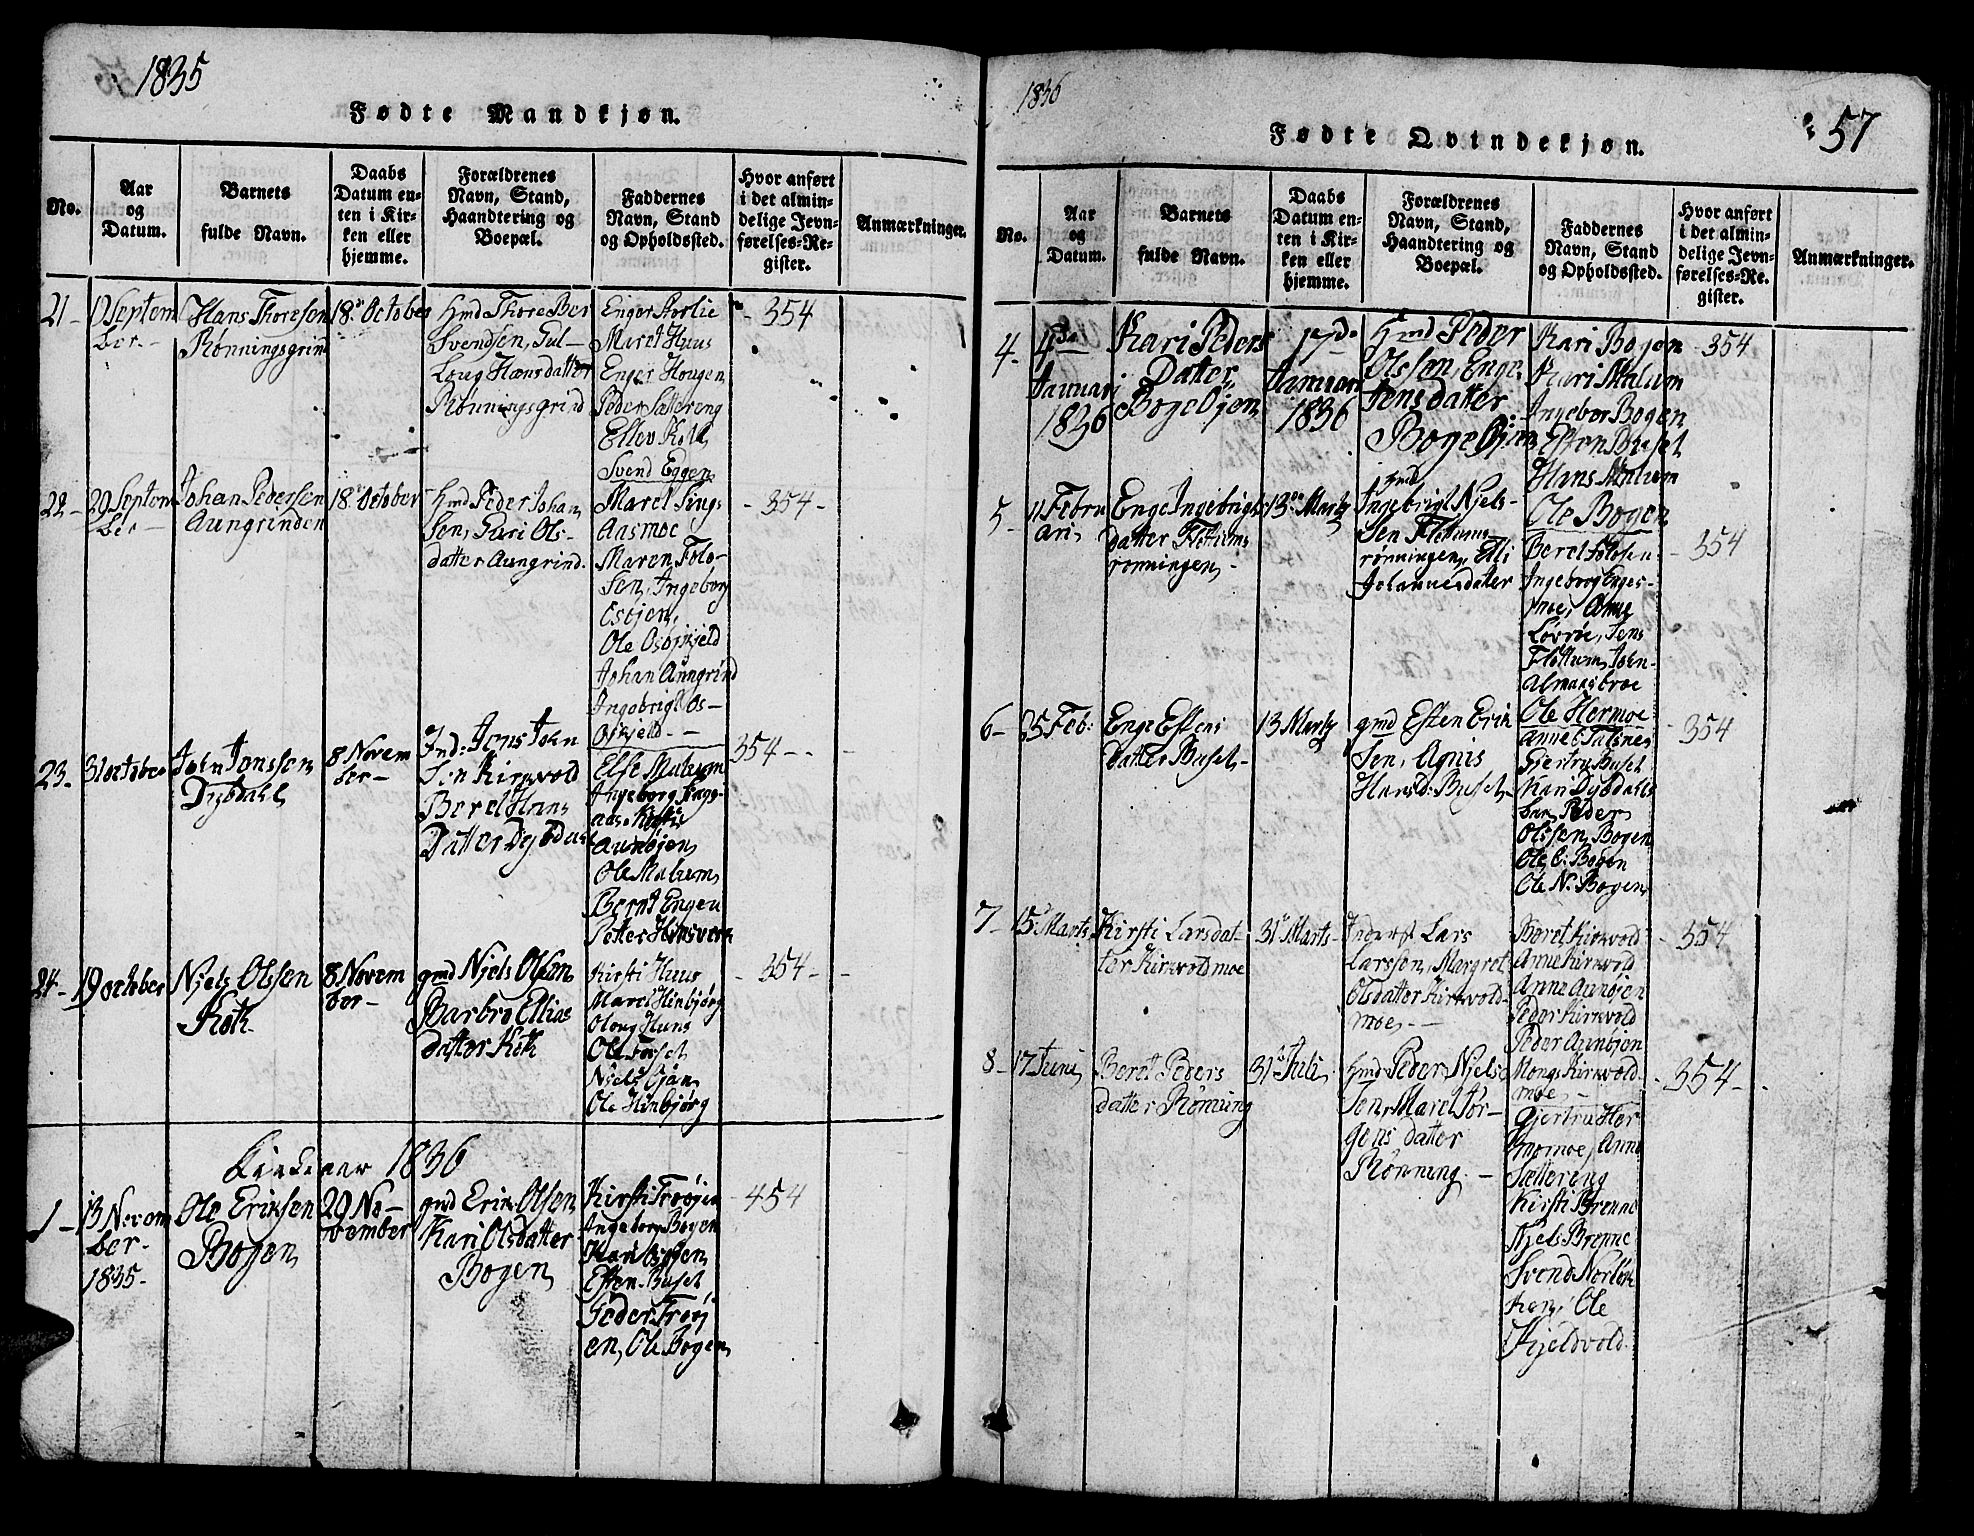 1835
Fødte Mandkjøn.
No.
Aar
og
Datum.
Barnets
fulde Navn.
Daabs
Datum en-
ten i Kir-
ken eller
hjemme.
Forældrenes
Navn, Stand,
Haandtering og
Boepæl.
Faddernes
Navn, Stand
og Opholdssted.
Hvor anført
i det almin-
delige Jevn-
førelses-Re-
gister.
Anmærkninger.
21-
Septem
ber-
Hans Thoresen
Rønningsgrind
18de October
Hmd Thore Ber
Svendsen, Gul-
Loug Hansdatter
Rønningsgrind
Enger Storlie
Maret Huus
Enger Hougen
Peder Sættereng
Ellev Kotk
Svend Eggen
354
22-
29 Septem
ber-
Johan Pedersen
Aungrinden
18de October
Hmd Peder Johan
Sen, Guri Ols-
datter Aungrind.
Maret Sings
Aasmoe
Maren Folo-
Sen, Ingeborg
Esøjen,
Ole Osøjkjeld
Johan Aungrind
Ingebrigt Os-
øjkjeld--
-354-
23.
31 october
John Jonssen
Dybdahl
8 Novem
ber-
Ind: Jons John
Sen Kirkvold
Beret Hans
Datter Dybdahl
Else Malum
Ingeborg Sings-
aas. Kirsti
Aunøjen
Ole Malum
Bernt Engen
Petter
354--
24-
19 october
Njels Olssen
Kotk
8 Novem
ber-
gmd Njels Olssen
Barbro Ellias
datter Kotk
Kirsti Huus
Maret Hinbjørg
Oloug Huus
Ole Fosset
Njels Øjan
Ole Hinbjørg
-354-
Kirkeaar 1836
1-
13 Novem
ber-
1835-
Ole Eriksen
Bogen
29 No-
vember
gmd Erik Olssen
Kari Olsdatter
Bogen
Kirsti Trøøjen
Ingebor Bogen
Kari
Esten Buset
Peder Trøøj
en, Ole Bogen
454
1836
57
Fødte Qvindekjøn.
No.
Aar
og
Datum.
Barnets
fulde Navn.
Daabs
Datum en-
ten i Kir-
ken eller
hjemme.
Forældrenes
Navn, Stand,
Haandtering og
Boepæl.
Faddernes
Navn, Stand
og Opholdssted.
Hvor anført
i det almin-
delige Jevn-
førelses-Re-
gister.
Anmærkninger.
4-
4de
Januari
1836
Kari Peders
Datter
Bogeøjen
17de
Januari
1836
Hmd Peder
Olssen, Enge
Jensdatter
Bogeøjen
Kari Bogen
Kari Malum
Ingebor Bogen
Esten Buset
Hans Malum
Ole Bogen
-354
5-
11 Febru
ari
Enge Ingebrigts
datter Flottums
rønningen-
13de Marty
Hmd
Ingebrigt Njels-
Sen Flottums
rønningen, Elli
Johannesdatter
Beret Folosen
Ingeborg Enges-
moe, Anne
Løvrøe, Jens
Flottum, John-
Almaasbroe
Ole Hermoe
-354
6-
25 Feb:
Enge Estens
datter Buset-
13 Marty
gmd Esten Erik
Sen, Agnis
Hansd: Buset-
Anne Talsnes
Gjertru Buset
Kari Dybdahls
Peder
Olssen Bogen
Ole E: Bogen
Ole N: Bogen
-354
7-
15de Marts
Kirsti Larsdat-
ter Kirkvoldmoe
31te Marts-
Inderst Lars
Larssen, Margret
Olsdatter Kirkvold-
moe--
Beret Kirkvold
Anne Kirkvold
Anne Aunøjen
Peder Kirkvold
Peder Aunøjen
Mongs Kirkvold-
moe,-
-354
8-
17 Juni
Beret Peders
datter Rønning
31te Juli
Hmd Peder Njelse
Sen, Maret Jør-
gens datter
Rønning-
Gjertru Her
moe, Anne
Sættereng
Kirsti Brenne
Njels Brenne
Svend Norløk
ken, Ole
Kjeldvold
-354-